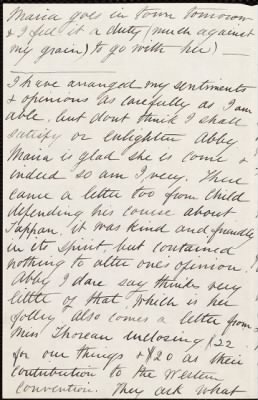 Maria goes in town tomorrow
& I feel it a duty (much against
my grain) to go with her) —
I have arranged my sentiments
& opinions as carefully as I am
able, but dont think I shall
satisfy or enlighten Abby
Maria is glad she is come &
indeed so am I very. There
came a letter too from Child
defending his course about
Tappan. it was kind and friendly
in its spirit, but contained
nothing to alter one's opinion.
Abby I dare say thinks very
little of that which is her
folly. also comes a letter from
Miss Thoreau inclosing $22
for our things & $20 as their
contribution to the Western
Convention. They ask what